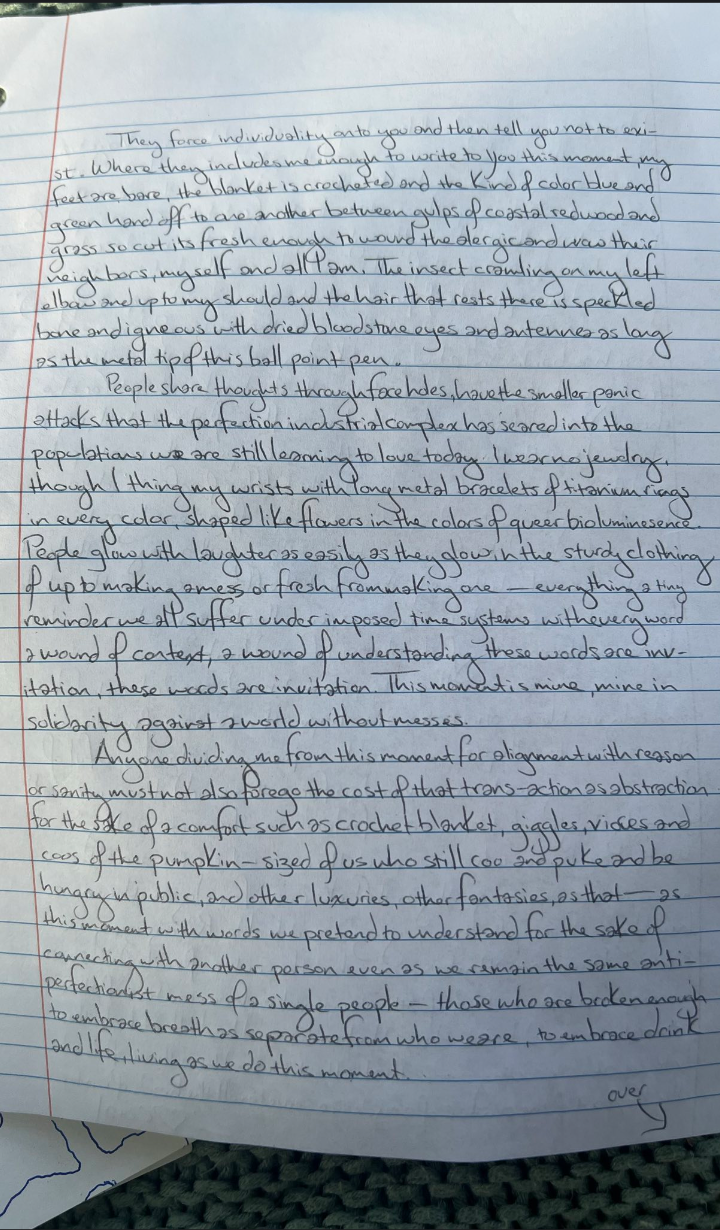 They force individuality onto you and then tell you not to exi-
st. Where they includes me enough to write to you this moment, my
feet are bare, the blanket is crocheted and the kind of color blue and
green hand off to one another between gulps of coastal redwood and
grass so cut its fresh enough to wound the alergic and wow their
neighbors, myself and all I am. The insect crawling on my left
elbow and up to my should and the hair that rests there is speckled
bone and igneous with dried bloodstone eyes and antennes as long
as the metal tip of this ball point pen.
People share thoughts through face holes, have the smaller panic
attacks that the perfection industrial complex has seared into the
populations we are still learning to love today. I wear no jewelry,
though I thing my wrists with long metal bracelets of titanium rings
in every color, shaped like flowers in the colors of queer bioluminesence.
People glow with laughter as easily as they glow in the sturdy clothing
of up to making a mess or fresh from making one — everything a tiny
reminder we all suffer under imposed time systems with every word
a wound of context, a wound of understanding these words are inv-
itation, these words are invitation. This moment is mine, mine in
solidarity against a world without messes.
Anyone dividing me from this moment for alignment with reason
or sanity must not also forego the cost of that trans-action as abstraction
for the sake of a comfort such as crochet blanket, giggles, and
coos of the pumpkin-sized of us who still coo and puke and be
hungry in public, and other luxuries, other fantasies, as that — as
this moment with words we pretend to understand for the sake of
connecting with another person even as we remain the same anti-
perfectionist mess of a single people — those who are broken enough
to embrace breath as separate from who we are, to embrace drink
and life, living as we do this moment.
over